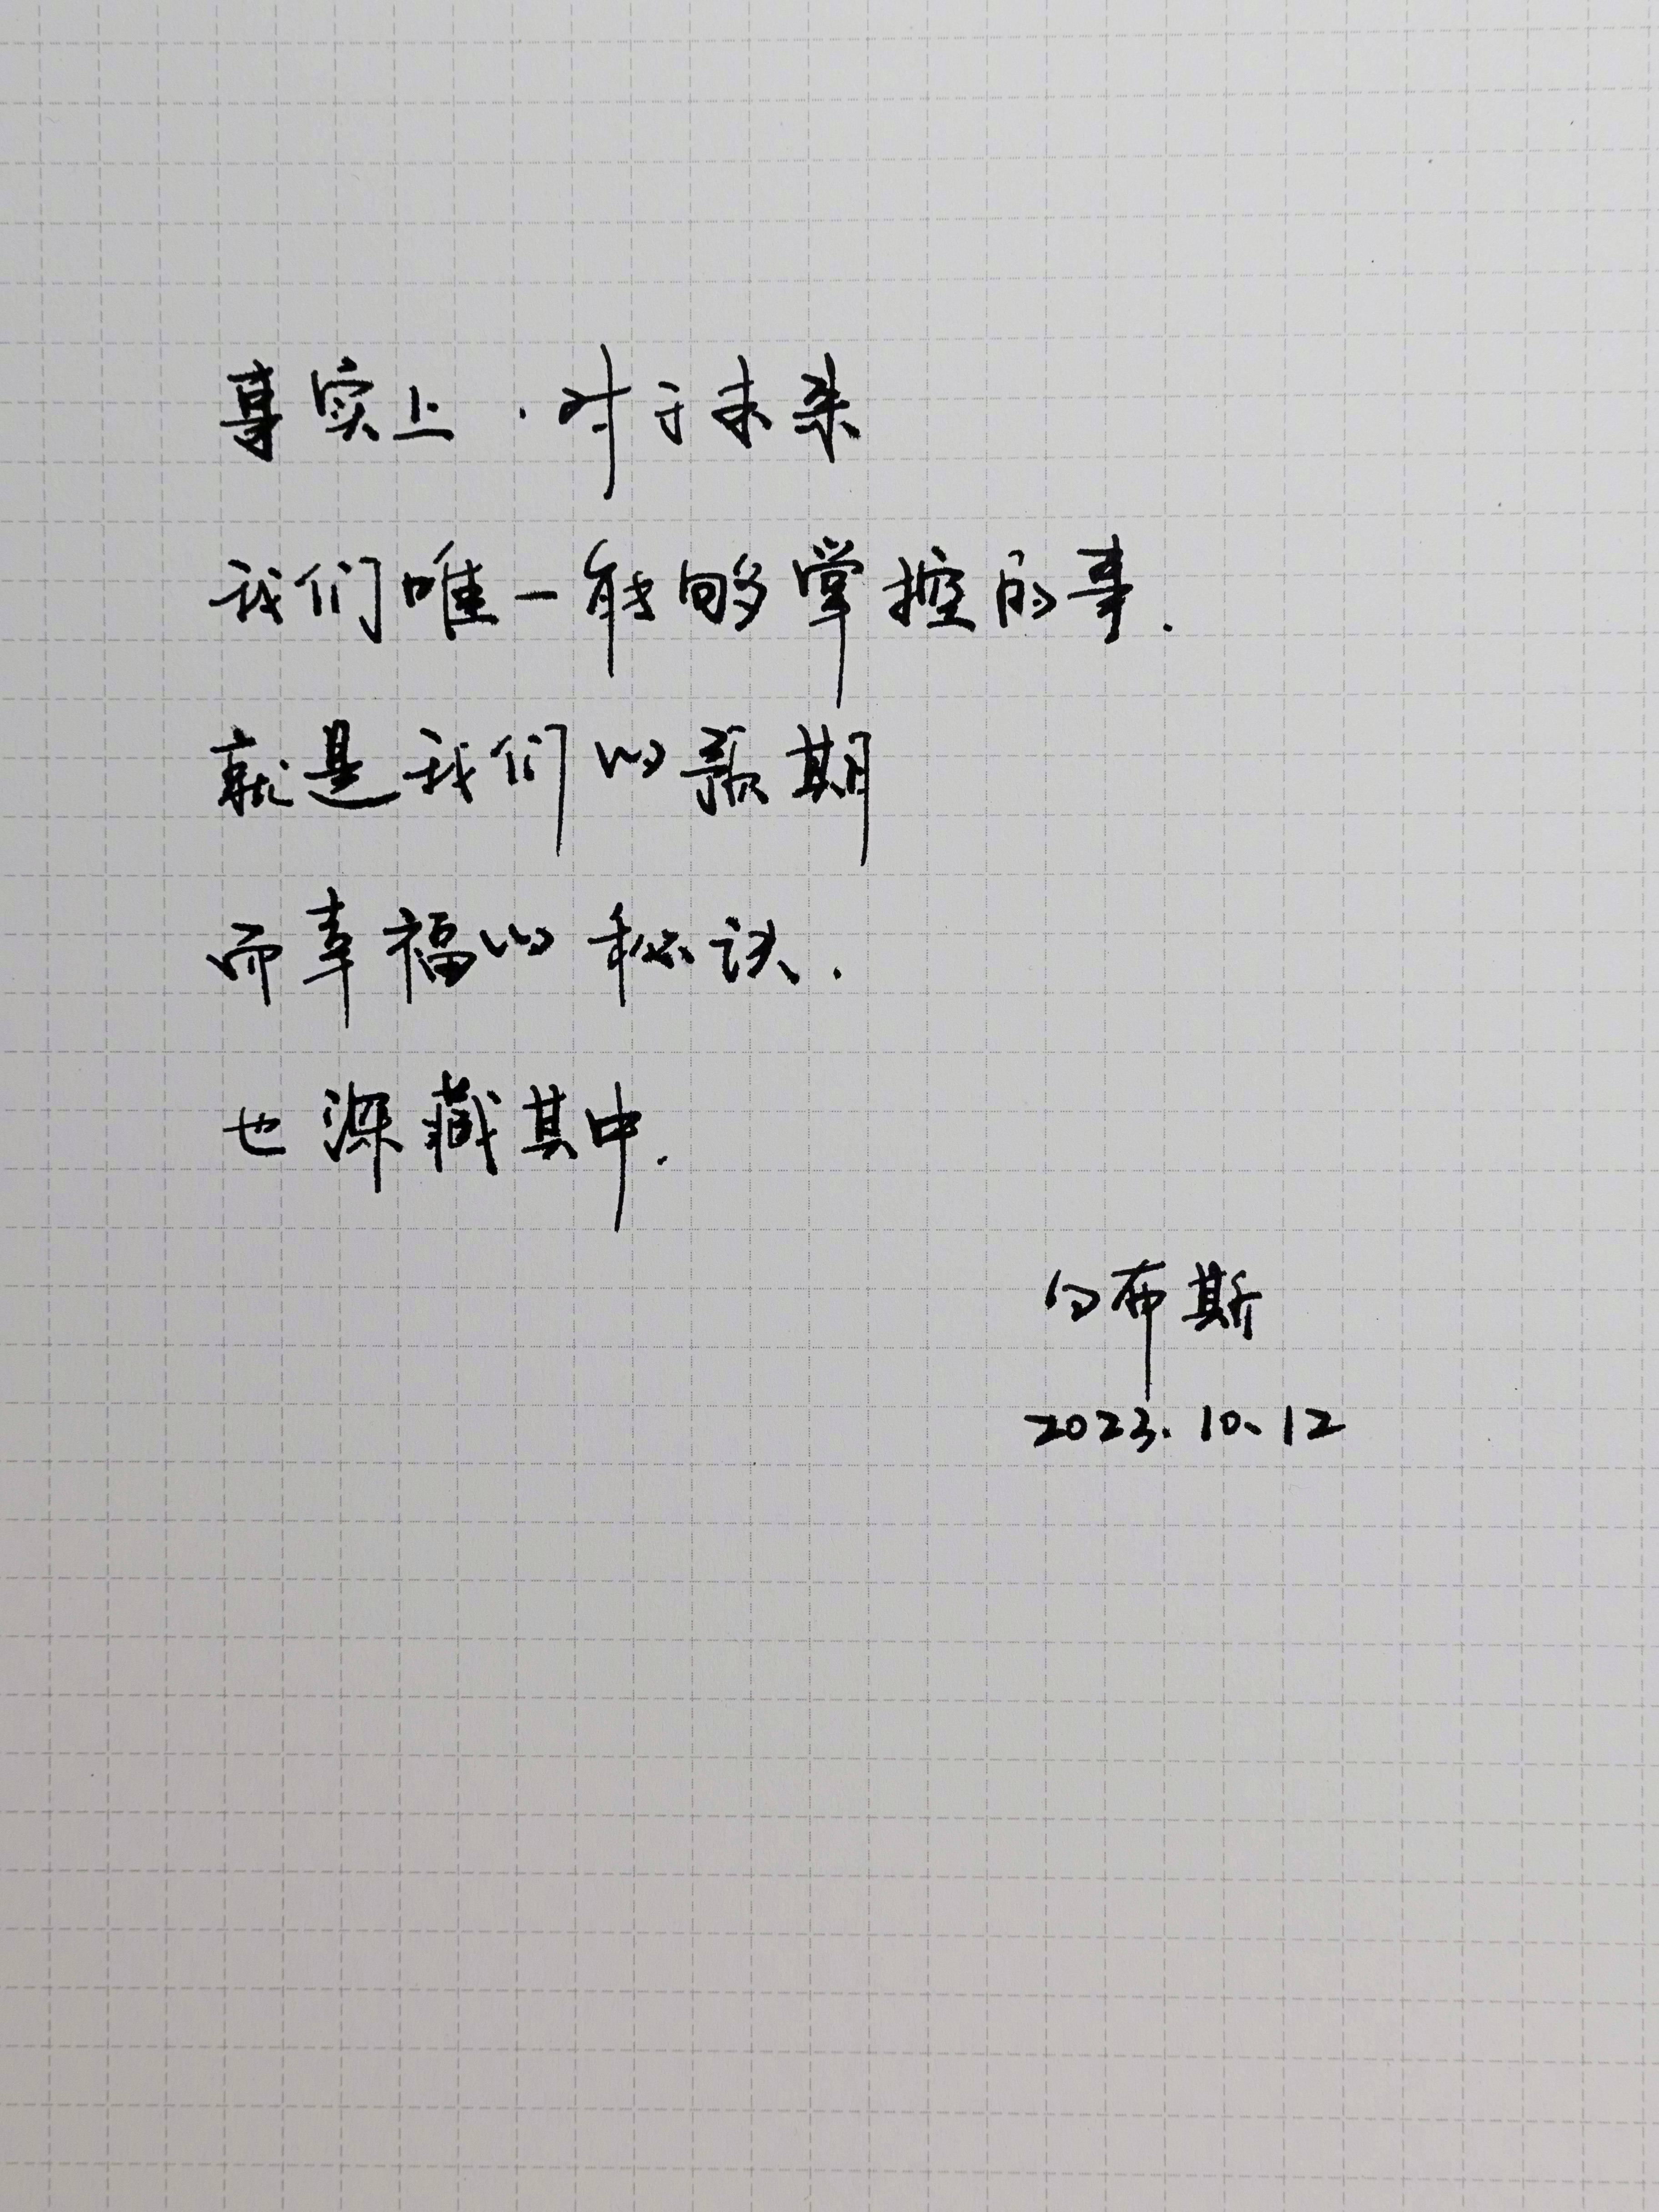 事实上.对于未来
我们唯一能够掌控的事.
就是我们的预期
而幸福的秘诀.
也深藏其中.
白布斯
2023.10.12